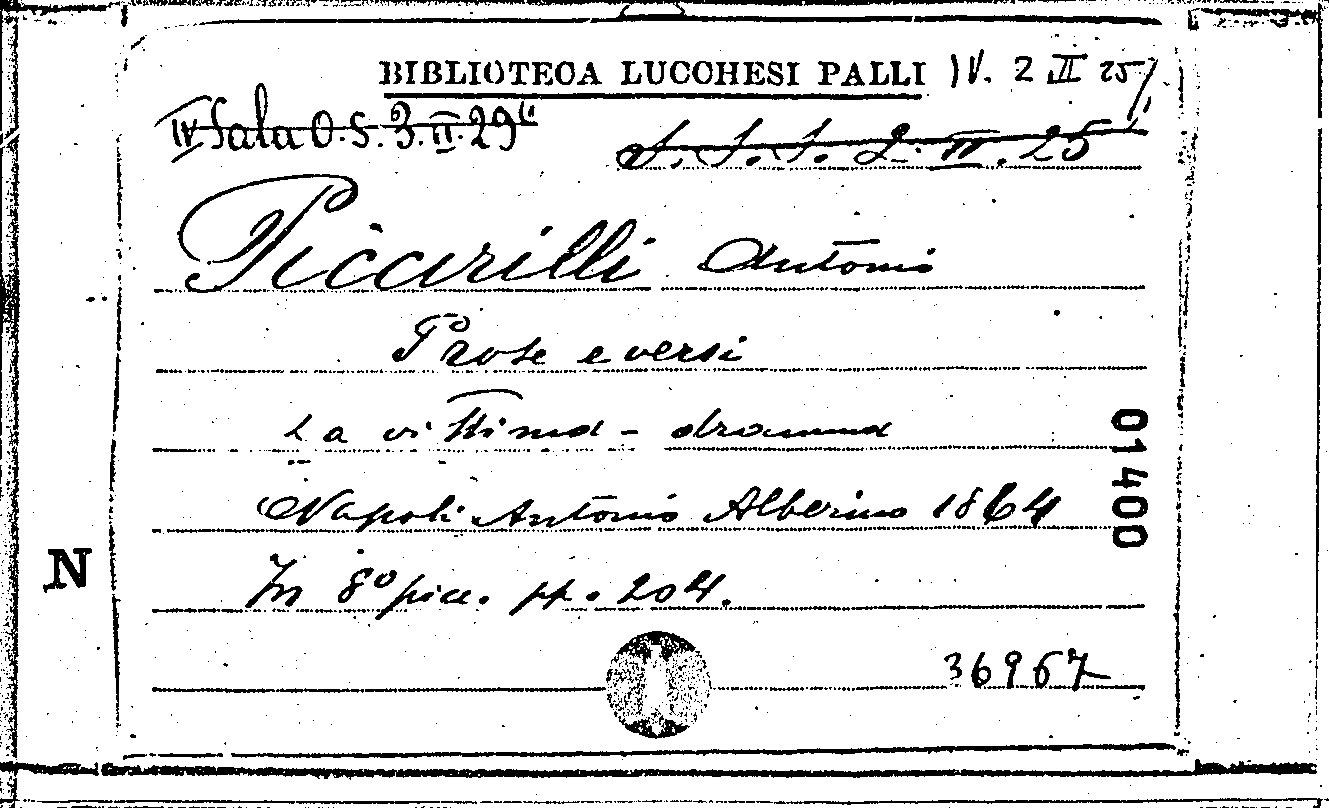 BIBLIOTECA LUCCHESI PALLI IV. 2 II 25/
IV Sala O. S. 3. II. 29
S. S. S. 2. II. 25
Piccirilli Antonio
Prose e versi
La vittima - dramma
Napoli Antonio Alberino 1864
01400
N
In 8º picc. pp. 204.
36967